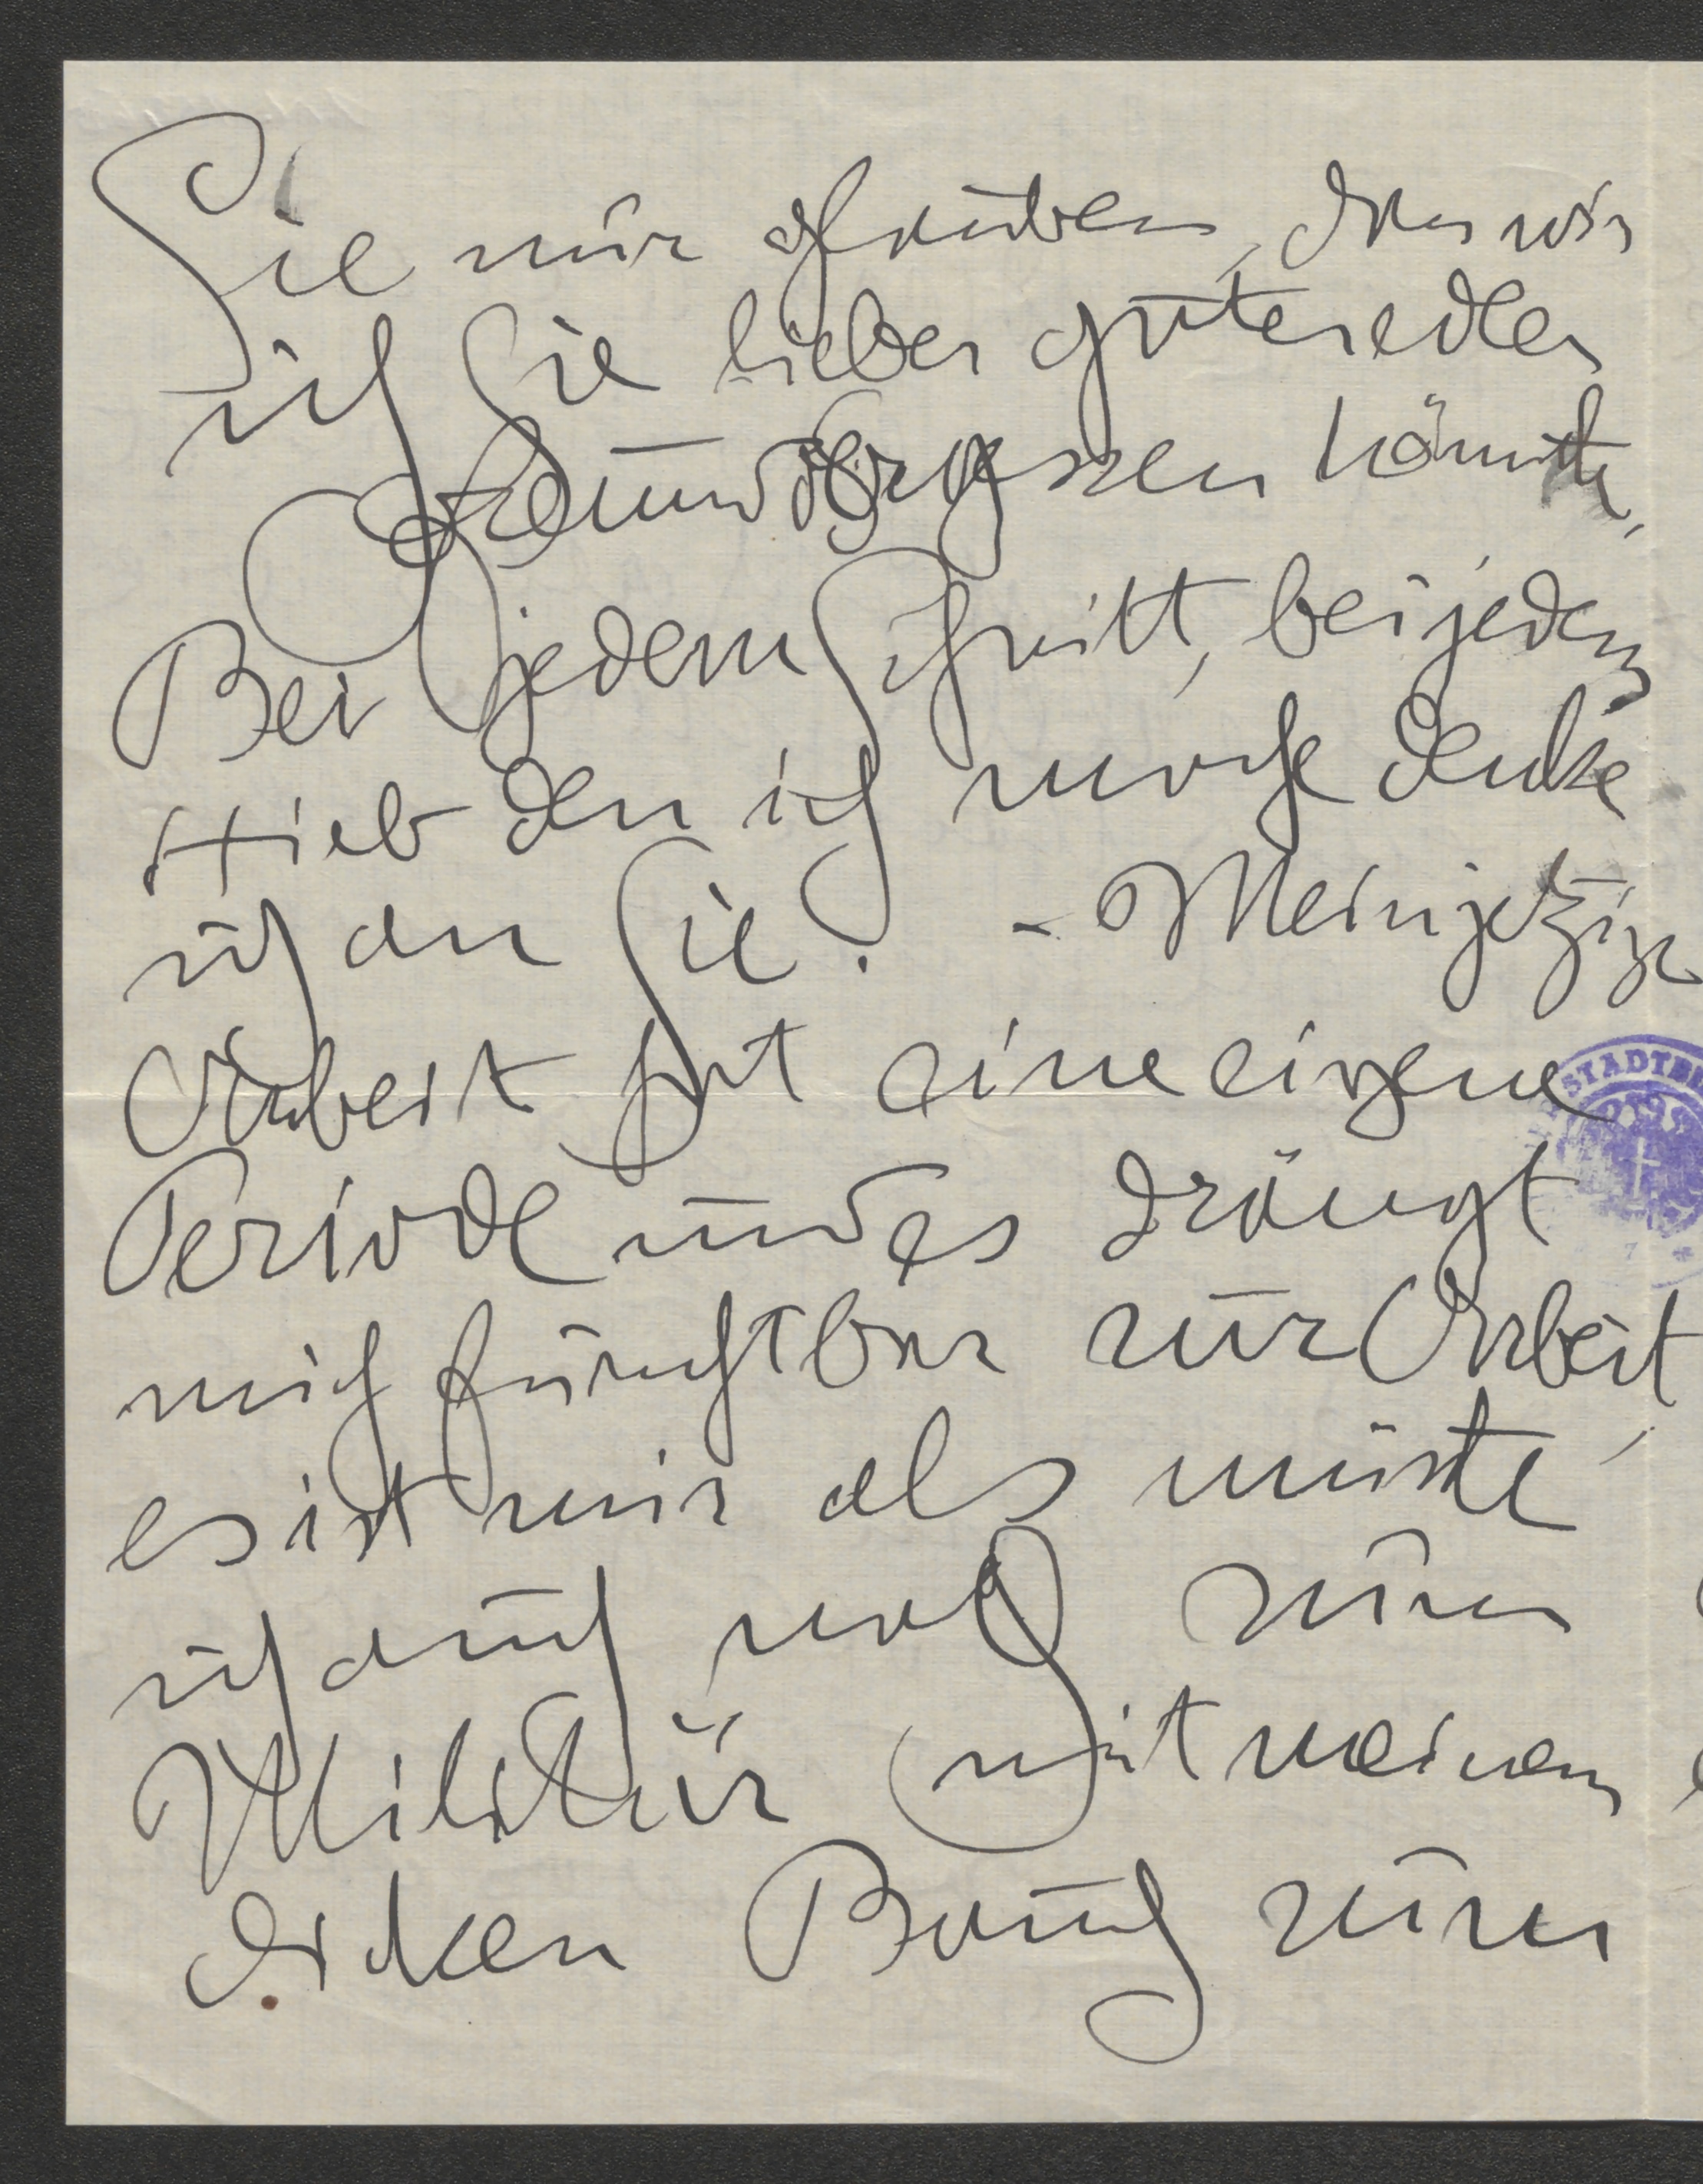 Sie mir glauben, das wir
ich Sie lieber guter edler
Freund vergessen könnte,
Bei jedem Schritt, bei jedem
Hieb den ich mache denke
ich an Sie. – Mein jetzige
Arbeit hat eine eigene
Periode und es drängt
mich furchtbar zur Arbeit,
es ist mir als müste
ich auch noch zum
Militär mit meinem
dicken Bauch zum
STADTBI